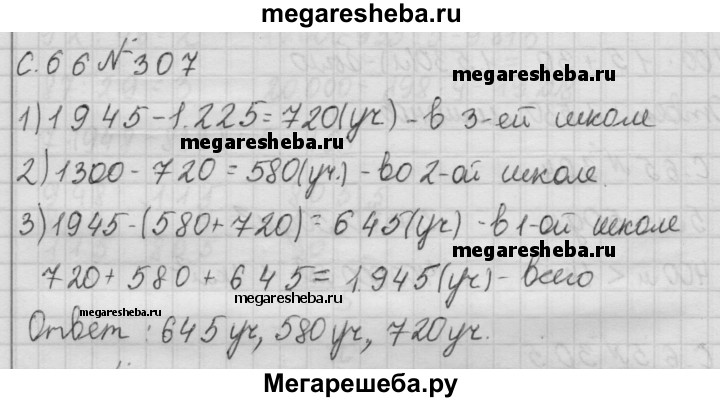 megaresheba.ru
С. 66 № 307
megaresheba.ru
1) 1945 - 1.225 = 720 (уч) - в 3-ей школе
megaresheba.ru
2) 1300 - 720 = 580 (уч.) - во 2-ой школе.
3) 1945 - (580 + 720) = 645 (уч) - в 1-ой школе
megaresheba.ru
720 + 580 + 645 = 1.945 (уч) - всего
megaresheba.ru
megaresheba.ru
Ответ : 645 уч, 580 уч, 720 уч.
Мегарешеба.ру